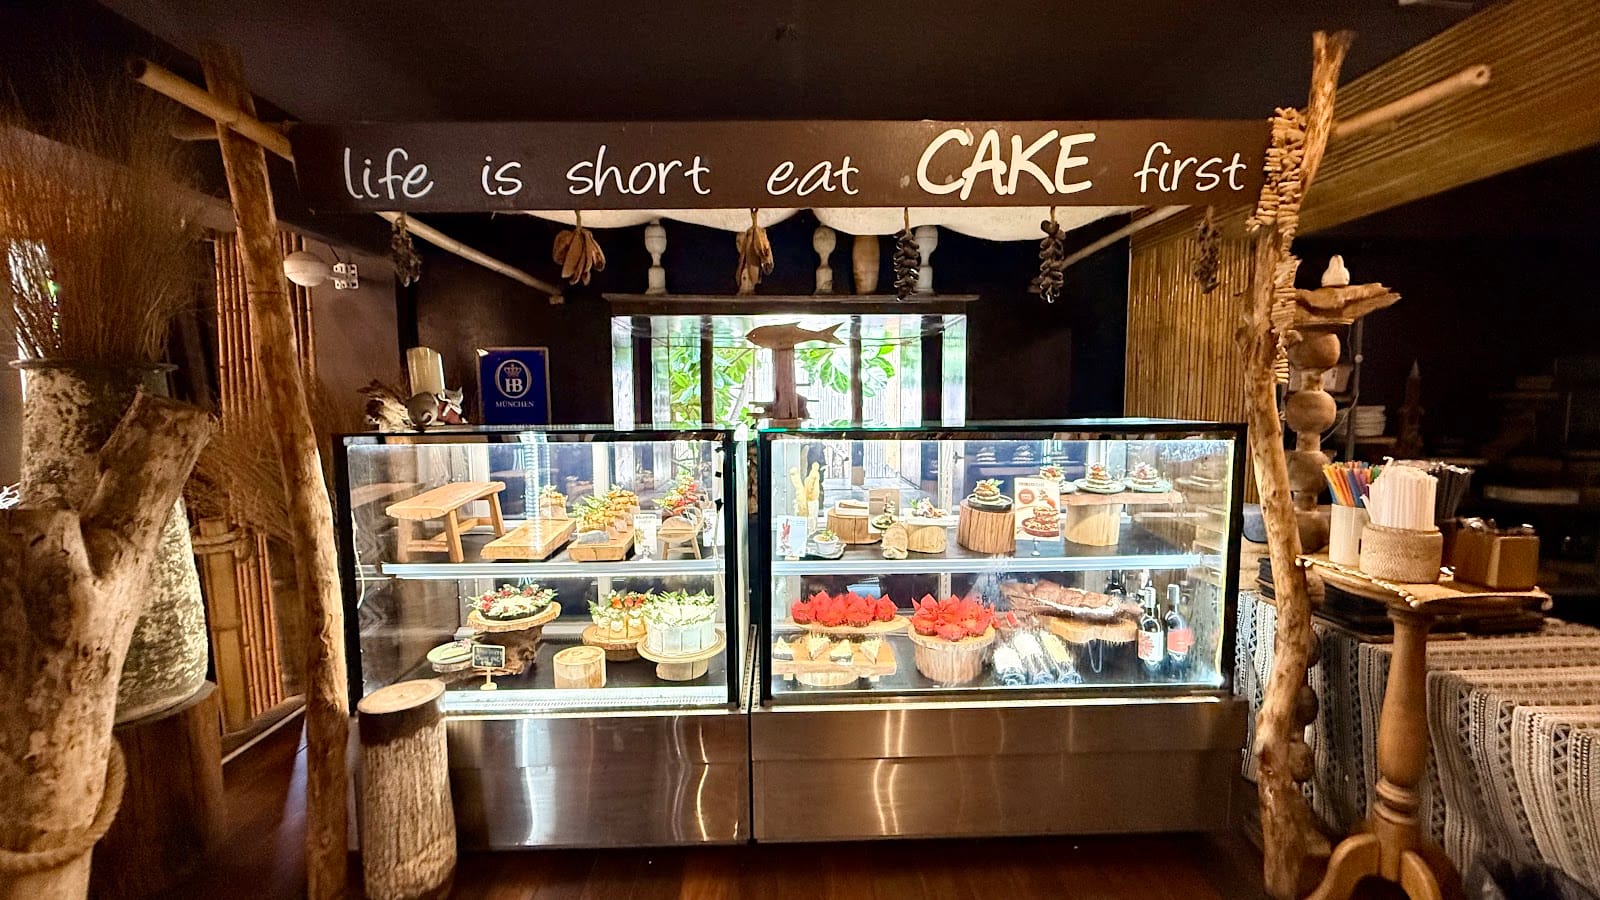 life is short eat CAKE first
HB
MÜNCHEN